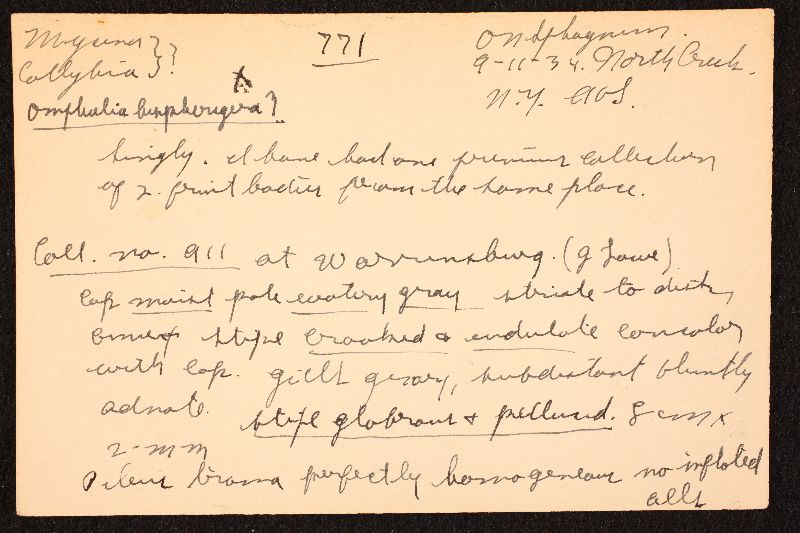 Mycena } ?
Collybia } ?
X
Omphalia bisphaerigera?
771
On Sphagnum.
9-11-34. North Creek.
N.Y. AOS.
Singly. I have had one previous collection
of 2 fruit bodies from the same place.
Coll. no. 911 at Warrensburg. (J Lowe)
Cap moist pale watery gray striate to disk,
convex stipe crooked & undulate concolor
with cap. gills gray, subdistant bluntly
adnate. stipe glabrous & pellucid. 8 cm x
2-mm
Pileus trama perfectly homogeneous no inflated
cells